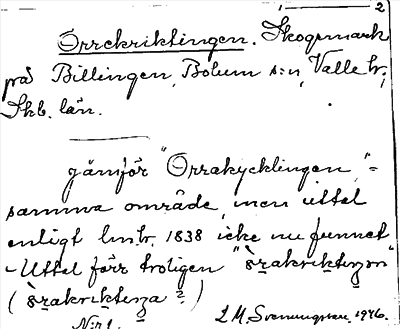 2
Orrekriktingen. Skogsmark
på Billingen, Bolum s:n, Valle hr,
Skb. län.
jämför "Orrakycklingen" =
samma område, men uttal
enligt lm.tr. 1838 icke nu funnet
- Uttal förr troligen "òrakriktiŋan"
(òrakrikteŋa?)
N:r 1. L. M. Svenungsson. 1946.